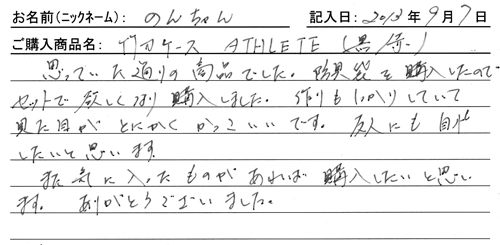 お名前(ニックネーム): のんちゃん 記入日: 2013年9月7日
ご購入商品名: 竹刀ケース ATHLETE (黒/赤)
思っていた通りの商品でした。防具袋を購入したので
セットで欲しくなり購入しました。作りもしっかりしていて
見た目がとにかくかっこいいです。友人にも自慢
したいと思います。
また気に入ったものがあれば購入したいと思い
ます。ありがとうございました。